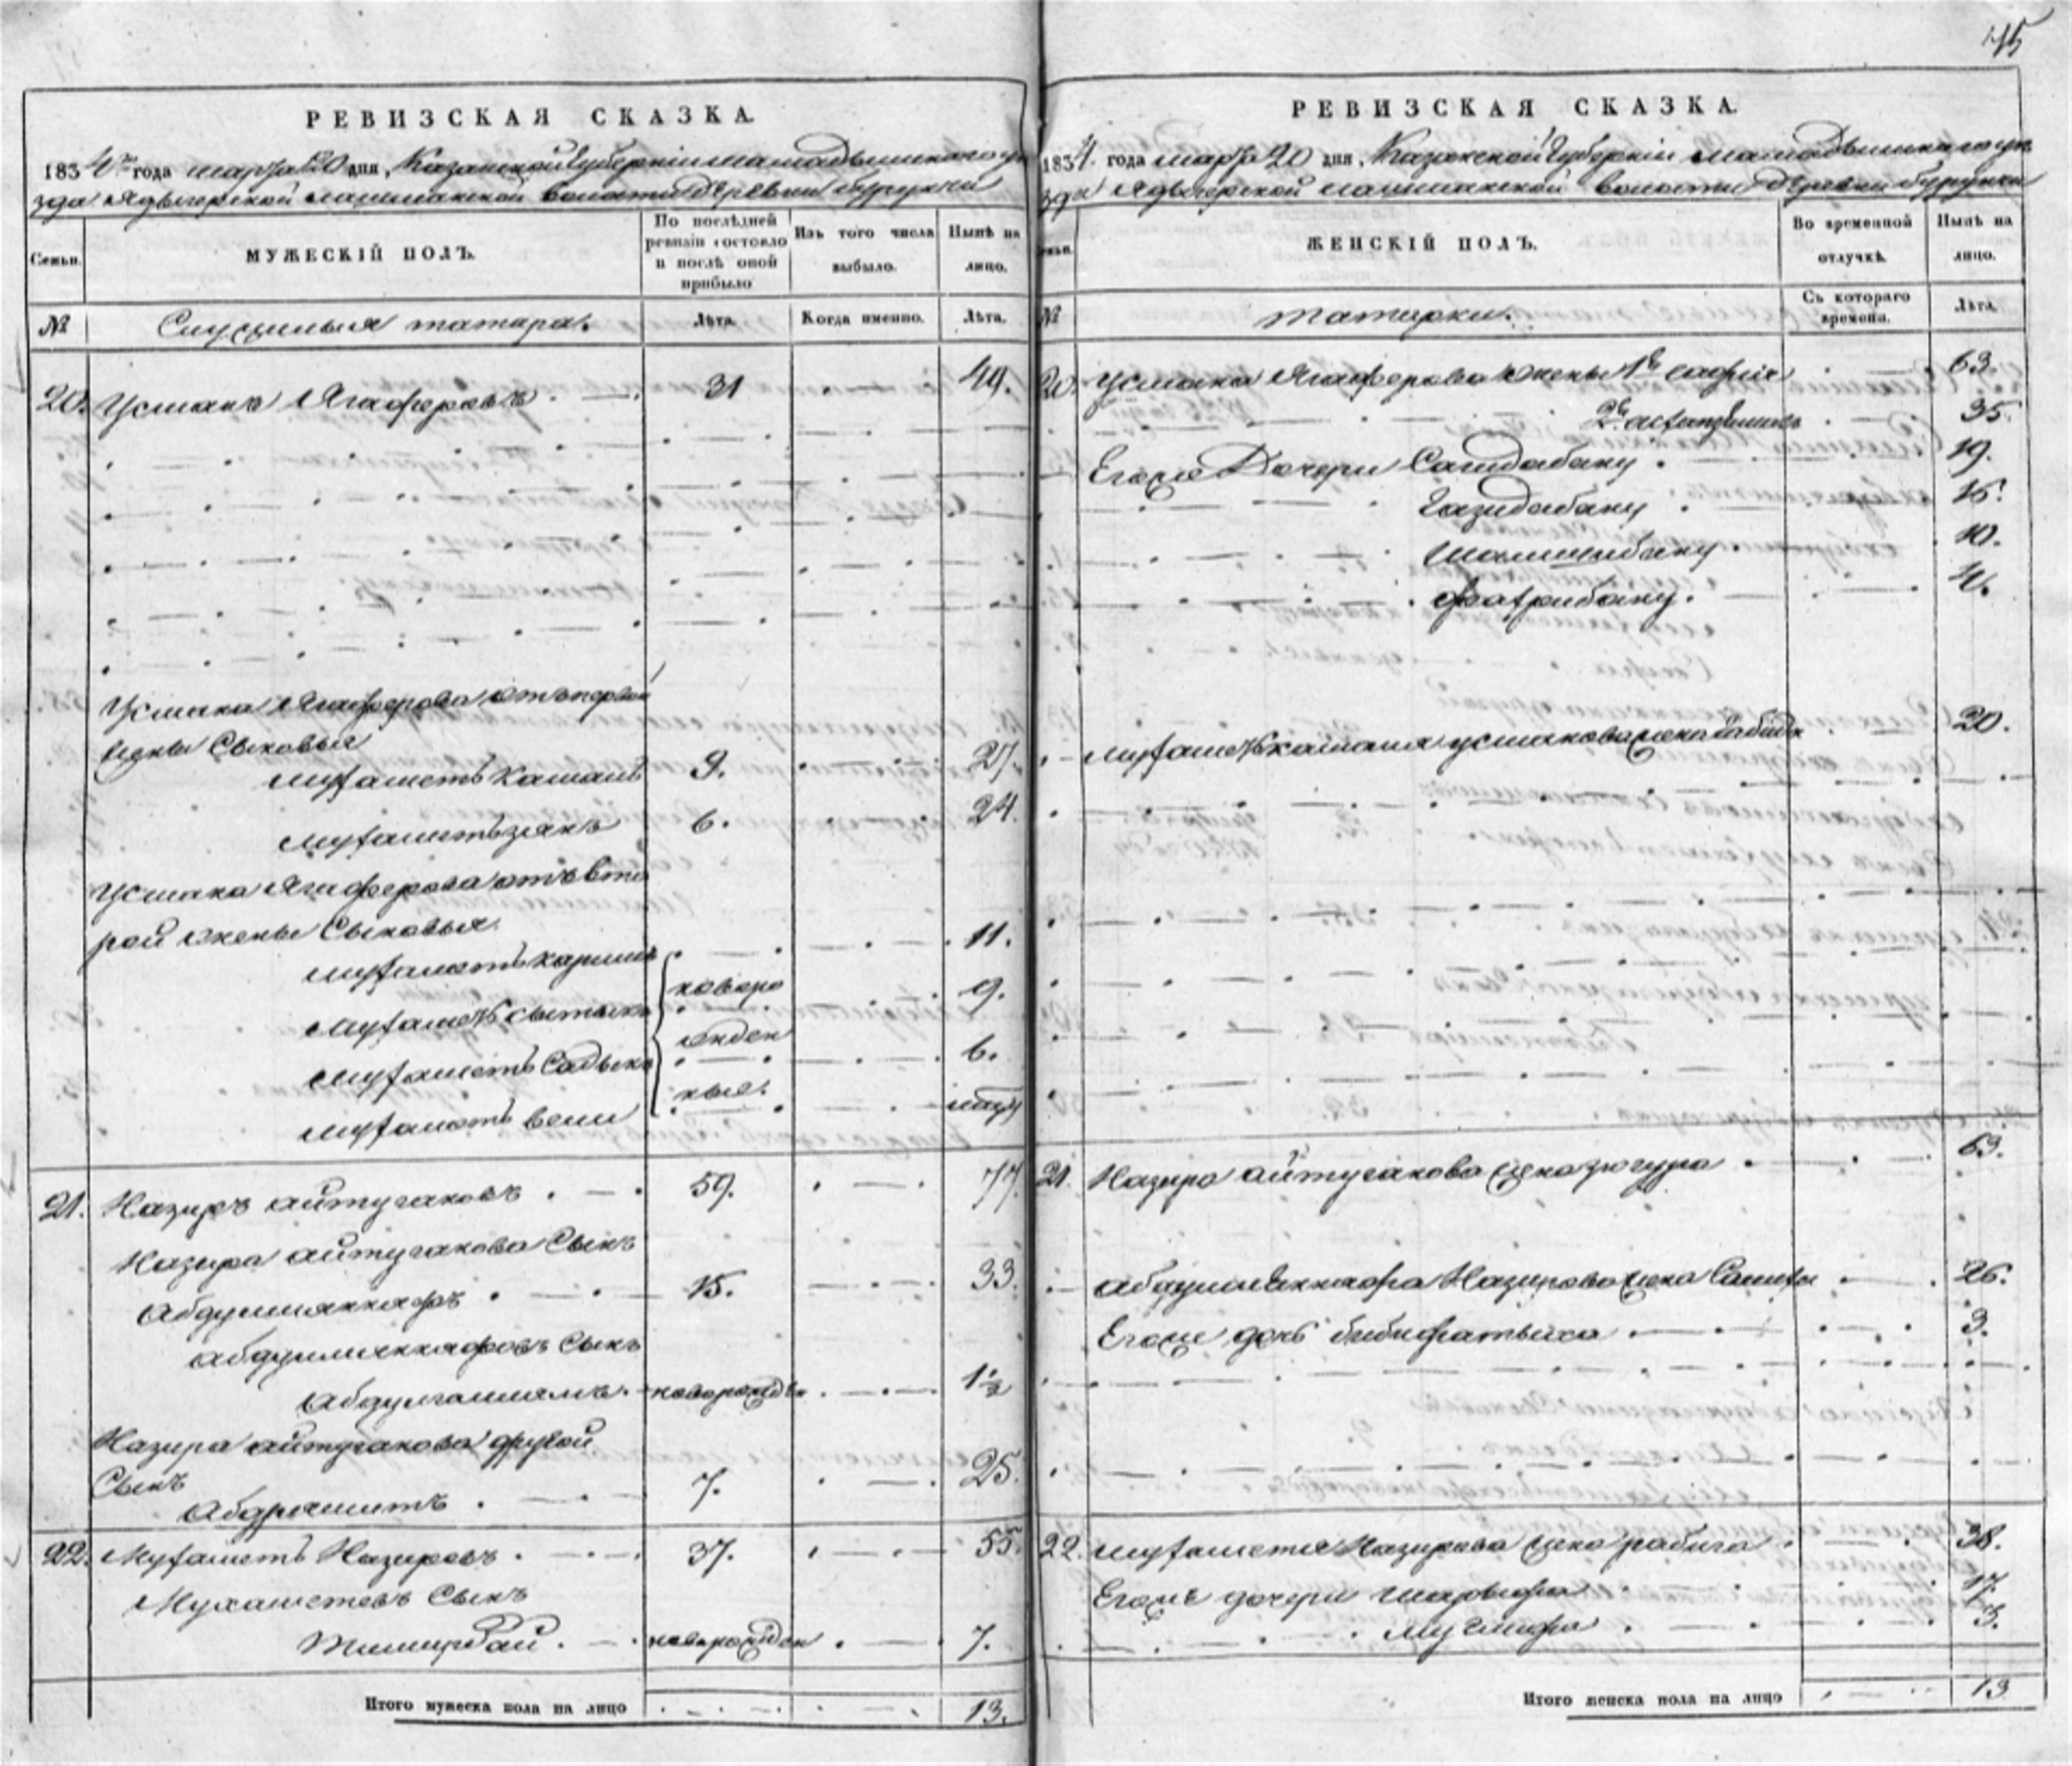 45
РЕВИЗСКАЯ СКАЗКА.
1834го года марта 20 дня, Казанской Губерніи мамадышскаго уѣ
зда Адаевской волости деревни
Семьи.
МУЖЕСКІЙ ПОЛЪ.
По послѣдней ревизіи состояло и послѣ оной прибыло
Изъ того числа выбыло.
Нынѣ на лицо.
№
Служилыя татара.
Лѣта.
Когда именно.
Лѣта.
20. Усманъ Ягаферовъ 31 49.
Усмана Ягаферова отъ первой
жены Сыновья
Мухаметъ Камалъ 9. 27.
Мухаметъ 6. 24.
Усмана Ягаферова отъ вто
рой жены Сыновья
Мухаметъ каримъ 11.
новоро
Мухаметъ 9.
жден
Мухаметъ Садыкъ 6.
ныя.
Мухаметъ вели
21. Назиръ айтугановъ 59. 77.
Назира айтуганова Сынъ
Абдулманнафъ 15. 33.
абдулманнафовъ Сынъ
новорожден 1½
Назира айтуганова другой
Сынъ
7. 25.
22. Мухаметъ Назировъ 37. 55.
Мухаметевъ Сынъ
Тимирбай новорожден 7.
Итого мужеска пола на лицо 13.
РЕВИЗСКАЯ СКАЗКА.
1834. года марта 20 дня, Казанской Губерніи мамадышскаго уѣ
зда волости деревни
Семьи.
ЖЕНСКІЙ ПОЛЪ.
Во временной отлучкѣ.
Нынѣ на лицо.
№
татарки.
Съ котораго времена.
Лѣта.
20. Усмана Ягаферова жены 1я сафія 63.
2я 35.
Егоже Дочери Сагидабану 19.
Газидабану 16.
10.
4.
Мухаметкамала усманова жена 20.
21. Назира айтуганова жена 63.
абдулманнафа Назирова жена 26.
Егоже дочь бибифатыха 3.
22. мухаметя Назирова жена рабига 38.
Егоже дочери шарифа 17.
3.
Итого женска пола на лицо 13